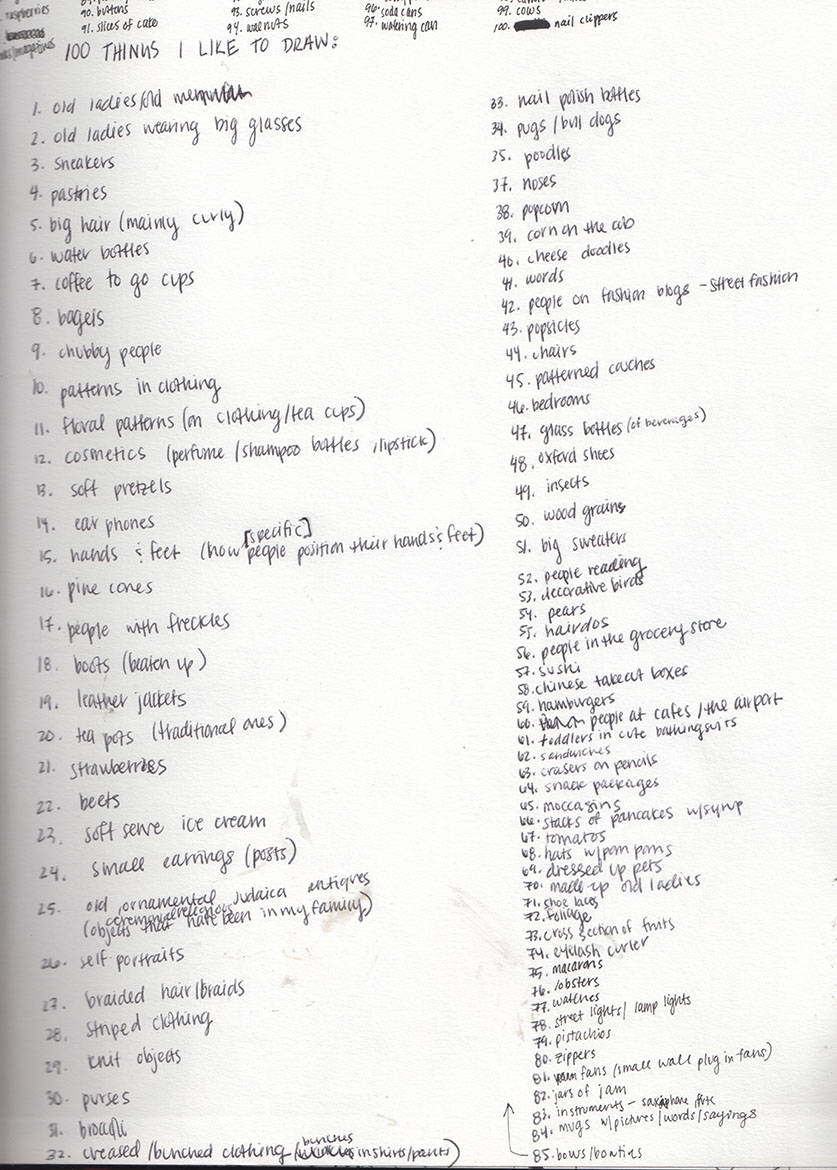 raspberries
90. buttons
91. slices of cake
93. screws/nails
94. walnuts
96. soda cans
97. watering can
99. cows
100. nail clippers
100 THINGS I LIKE TO DRAW:
1. old ladies/old men
2. old ladies wearing big glasses
3. sneakers
4. pastries
5. big hair (mainly curly)
6. water bottles
7. coffee to go cups
8. bagels
9. chubby people
10. patterns in clothing
11. floral patterns (on clothing/tea cups)
12. cosmetics (perfume/shampoo bottles, lipstick)
13. soft pretzels
14. ear phones
15. hands & feet (how [specific] people position their hands & feet)
16. pine cones
17. people with freckles
18. boots (beaten up)
19. leather jackets
20. tea pots (traditional ones)
21. strawberries
22. beets
23. soft serve ice cream
24. small earrings (posts)
25. old, ornamental, ceremonial religious Judaica antiques
(objects that have been in my family)
26. self portraits
27. braided hair/braids
28. striped clothing
29. knit objects
30. purses
31. brocolli
32. creased/bunched clothing (bunches in shirts/pants)
33. nail polish bottles
34. pugs/bull dogs
35. poodles
37. noses
38. popcorn
39. corn on the cob
40. cheese doodles
41. words
42. people on fashion blogs - street fashion
43. popsicles
44. chairs
45. patterned couches
46. bedrooms
47. glass bottles (of beverages)
48. oxford shoes
49. insects
50. wood grains
51. big sweaters
52. people reading
53. decorative birds
54. pears
55. hairdos
56. people in the grocery store
57. sushi
58. chinese takeout boxes
59. hamburgers
60. people at cafes/the airport
61. toddlers in cute bathingsuits
62. sandwiches
63. erasers on pencils
64. snack packages
65. moccasins
66. stacks of pancakes w/syrup
67. tomatos
68. hats w/pom poms
69. dressed up pets
70. made up old ladies
71. shoe laces
72. foliage
73. cross section of fruits
74. eyelash curler
75. macarons
76. lobsters
77. watches
78. street lights/lamp lights
79. pistachios
80. zippers
81. fans (small wall plug in fans)
82. jars of jam
83. instruments - saxophone
84. mugs w/pictures/words/sayings
85. bows/bowties